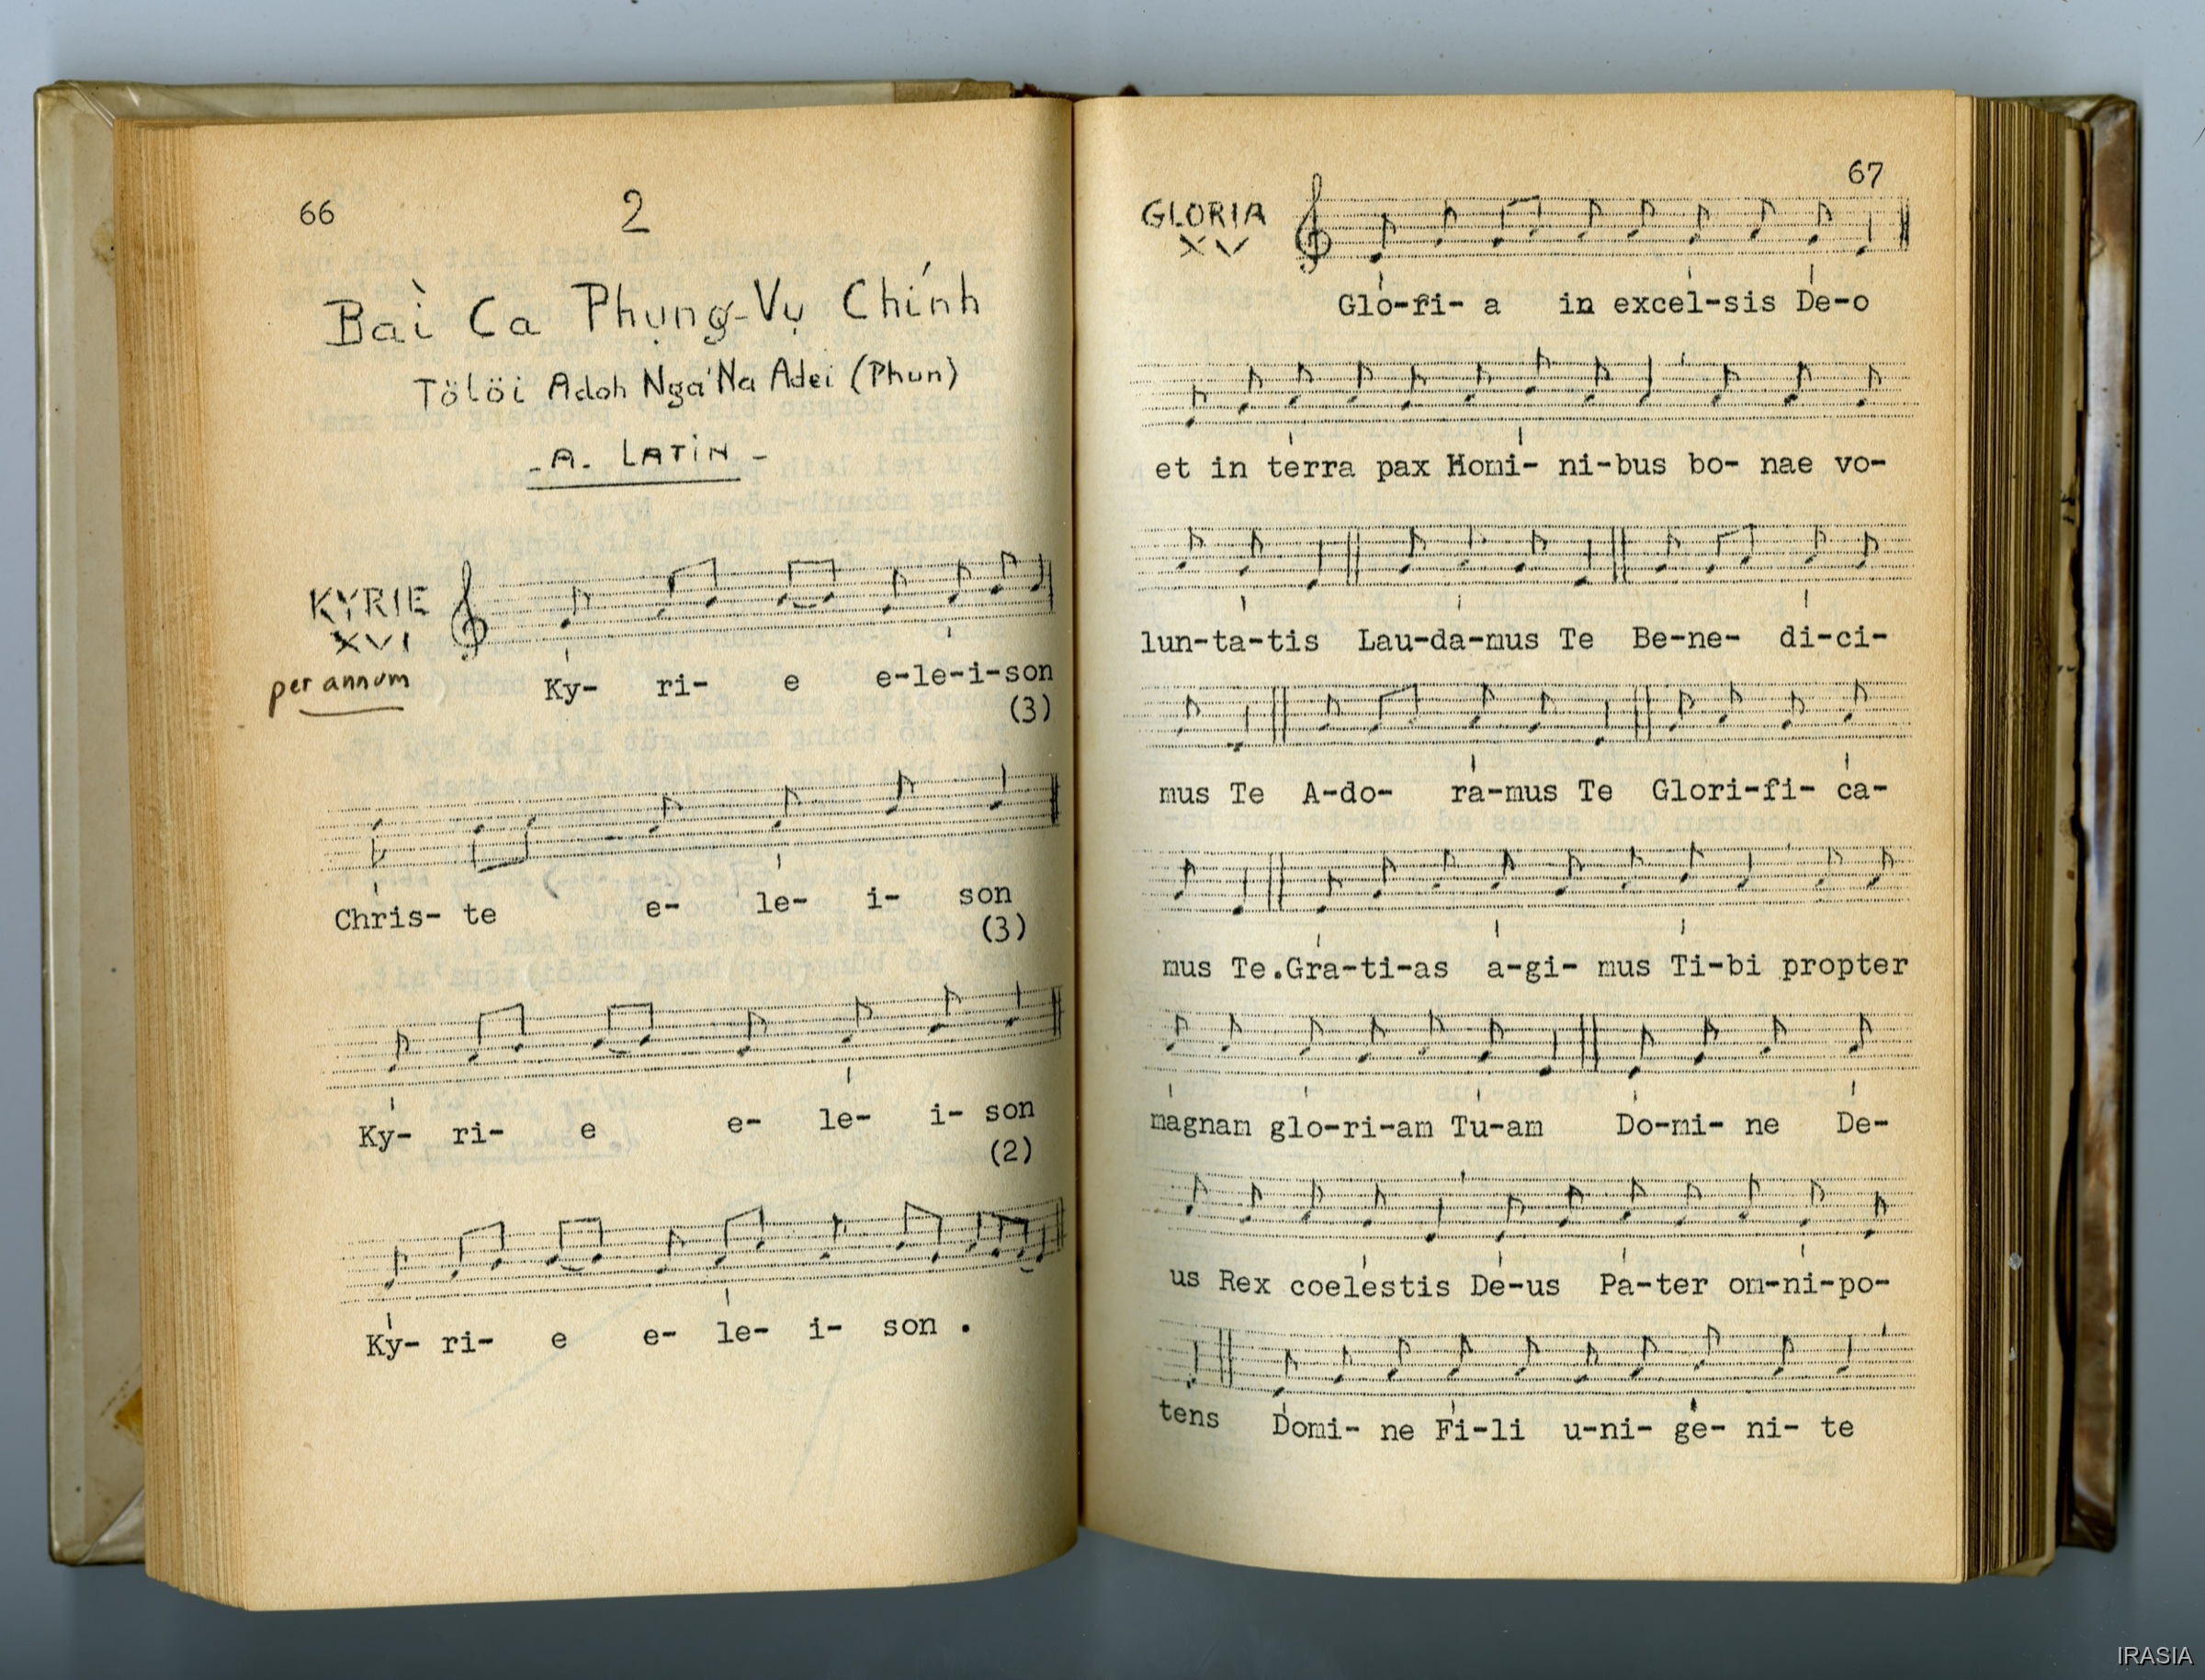 66
2
Bài Ca Phụng-Vụ Chính
Tölöi Adoh Nga'Na Adei (Phun)
- A. LATIN -
KYRIE
XVI
per annum
Ky- ri- e e-le-i-son
(3)
Chris- te e- le- i- son
(3)
Ky- ri- e e- le- i- son
(2)
Ky- ri- e e- le- i- son .
67
GLORIA
XV
Glo-ri- a in excel-sis De-o
et in terra pax Homi- ni-bus bo- nae vo-
lun-ta-tis Lau-da-mus Te Be-ne- di-ci-
mus Te A-do- ra-mus Te Glori-fi- ca-
mus Te.Gra-ti-as a-gi- mus Ti-bi propter
magnam glo-ri-am Tu-am Do-mi- ne De-
us Rex coelestis De-us Pa-ter om-ni-po-
tens Domi- ne Fi-li u-ni- ge- ni- te
IRASIA